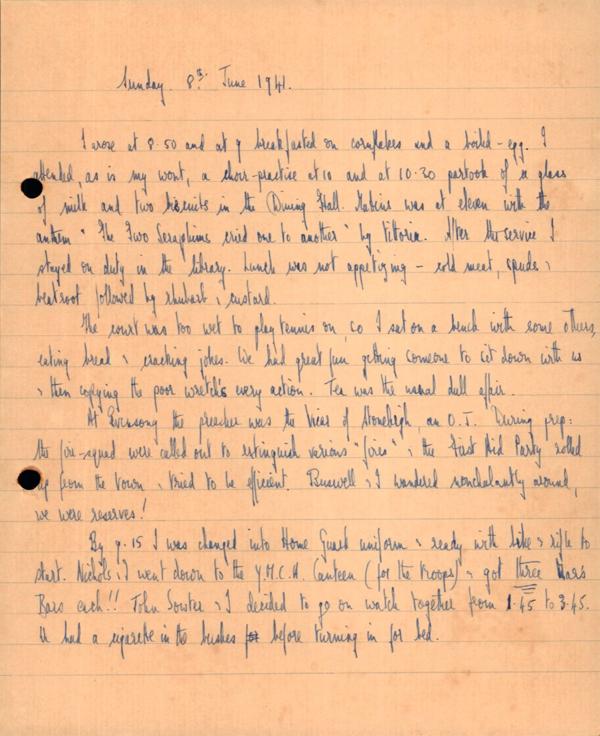 Sunday. 8th. June 1941.
I arose at 8.50 and at 9 breakfasted on cornflakes and a boiled-egg. I
attended, as is my wont, a choir-practice at 10 and at 10.30 partook of a glass
of milk and two biscuits in the Dining Hall. Matins was at eleven with the
anthem "The Two Seraphims cried one to another" by Vittoria. After the service I
stayed on duty in the library. Lunch was not appetizing - cold meat, spuds &
beetroot followed by rhubarb & custard.
The court was too wet to play tennis on, so I sat on a bench with some others,
eating bread & cracking jokes. We had great fun getting someone to sit down with us
& then copying the poor wretch's every action. Tea was the usual dull affair.
At Evensong the preacher was the Vicar of Stoneleigh, an O.J. During prep:
the fire-squad were called out to extinguish various "fires", & the First Aid Party rolled
up from the town & tried to be efficient. Buswell & I wandered nonchalantly around,
we were reserves!
By 9.15 I was changed into Home Guard uniform & ready with bike & rifle to
start. Nichols & I went down to the Y.M.C.A. Canteen (for the troops) & got three Mars
Bars each!! John Souter & I decided to go on watch together from 1.45 to 3.45.
We had a cigarette in the bushes before turning in for bed.